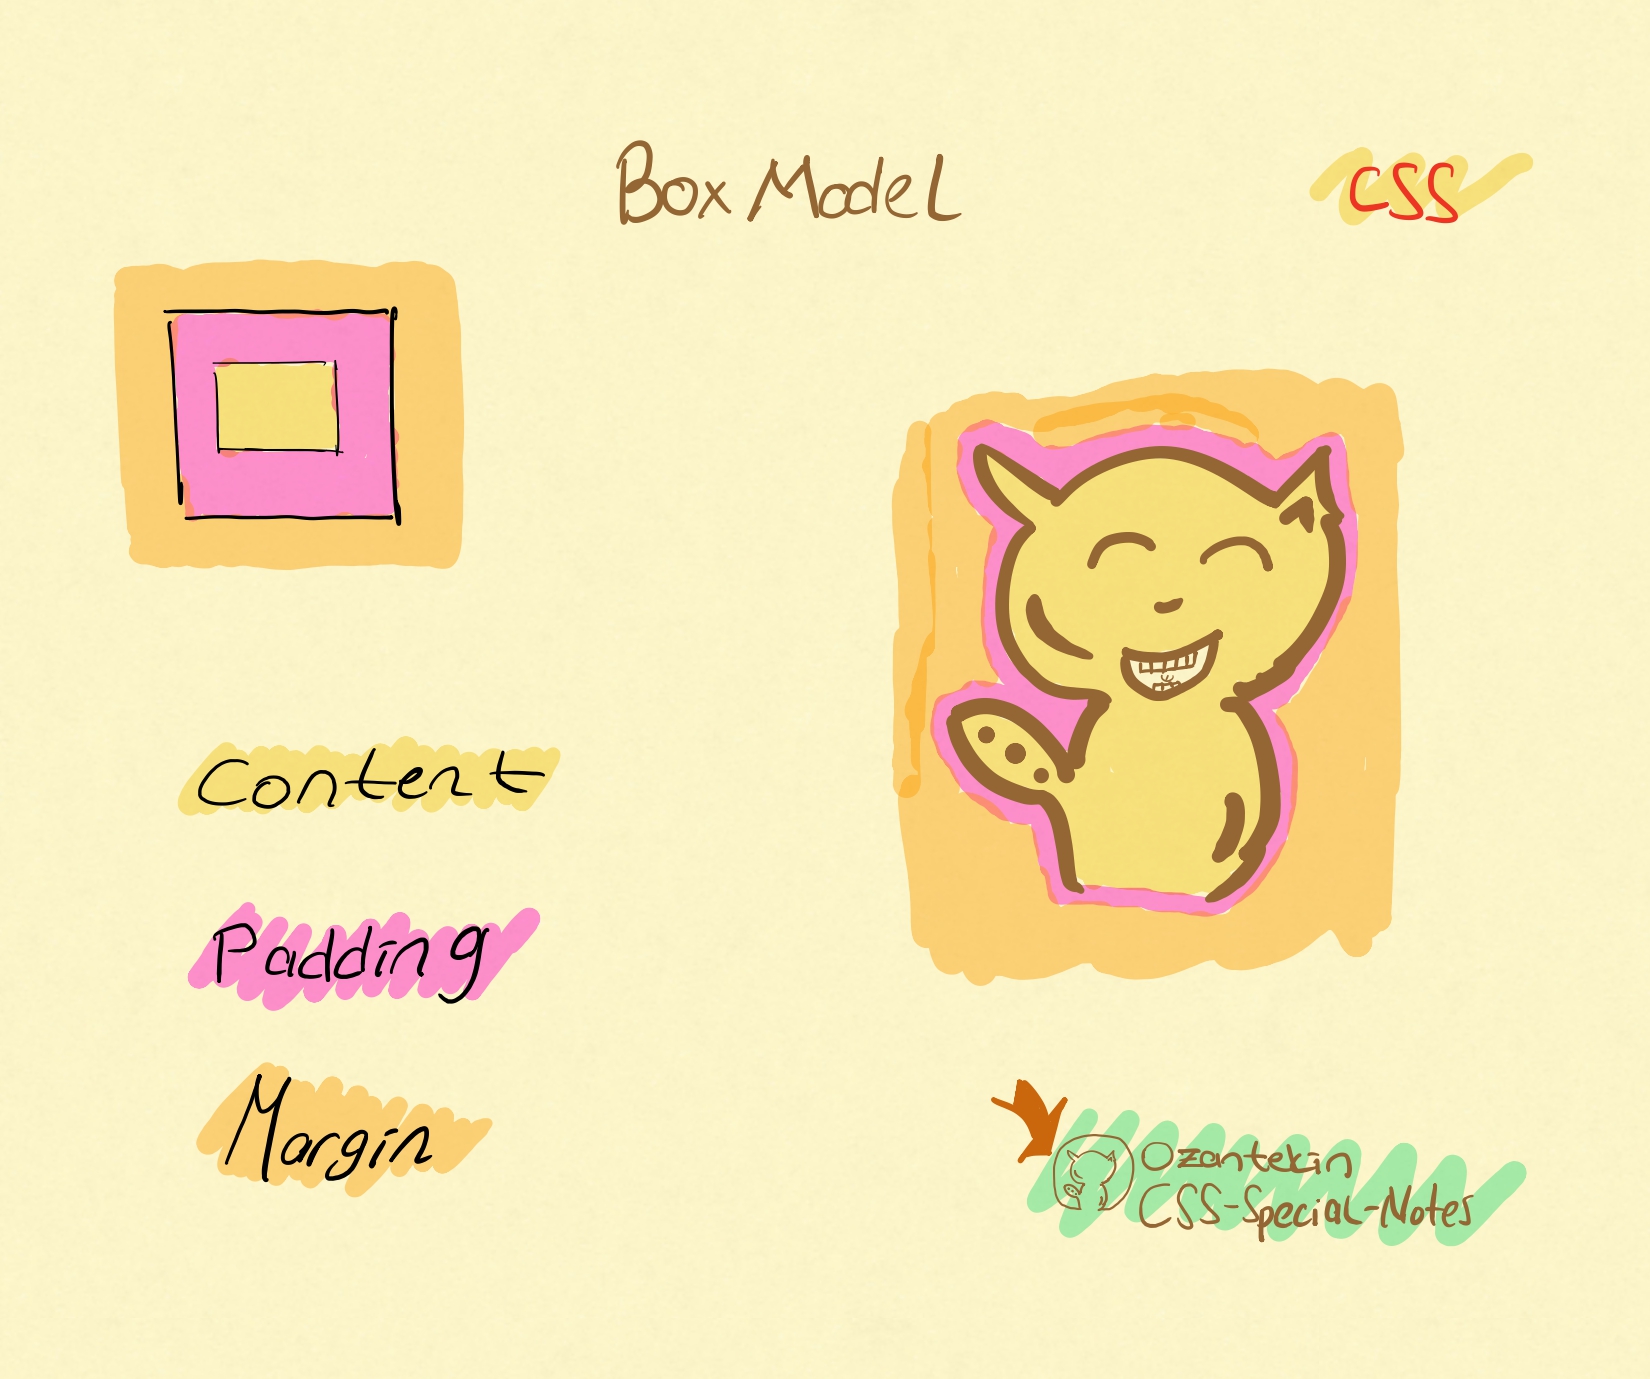 Box Model
CSS
Content
Padding
Margin
Ozantekin
CSS-Special-Notes